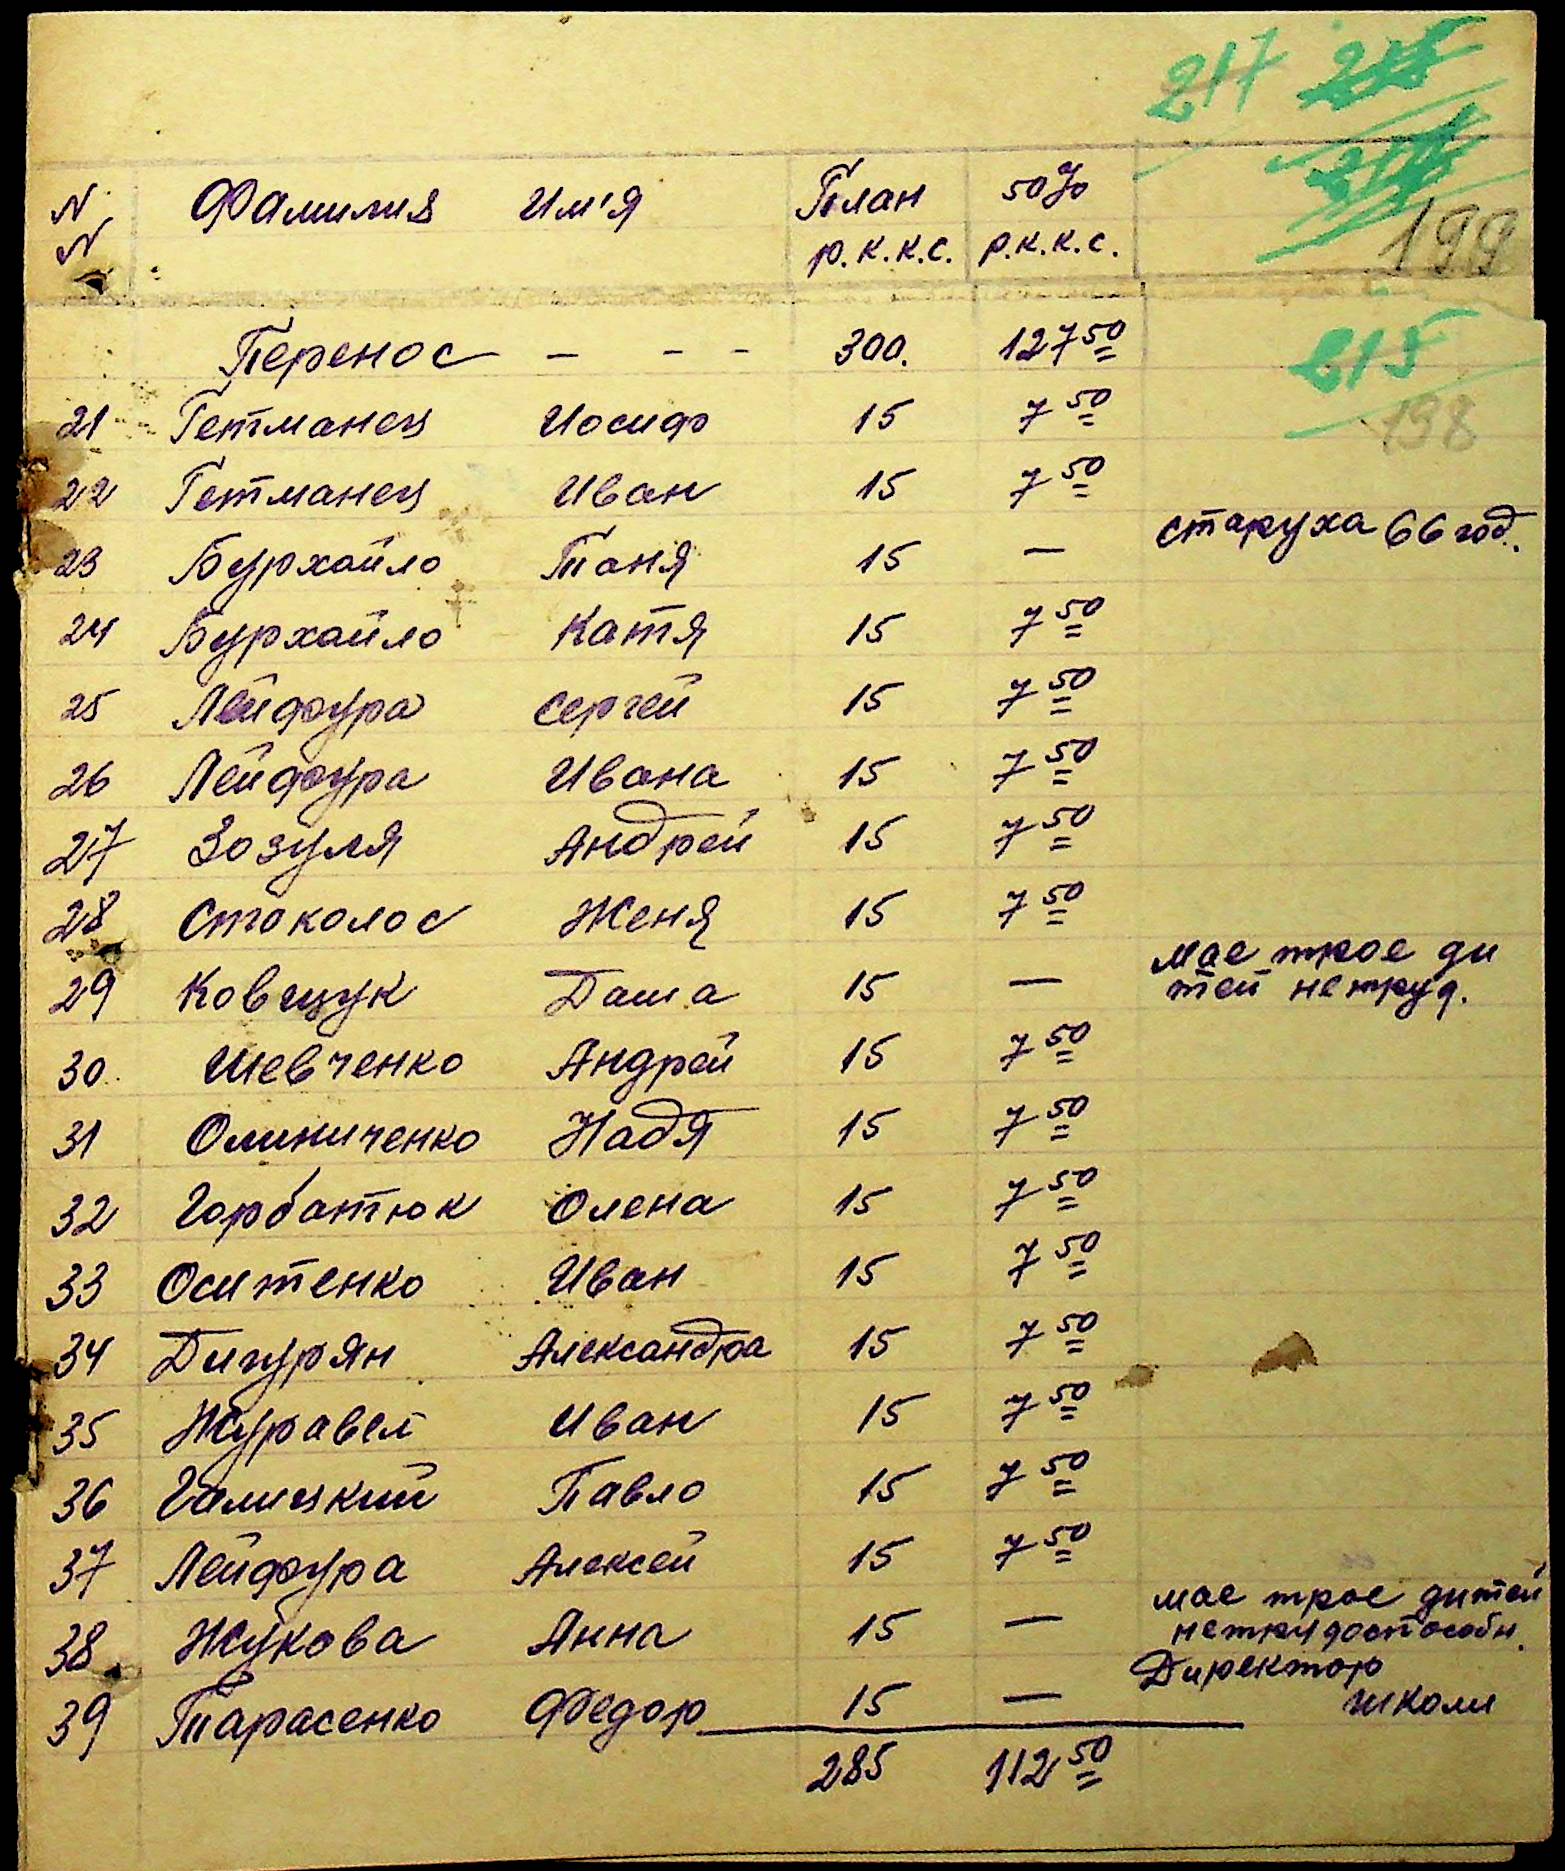 217 215
199
N Фамилия Им'я План 50%
N р.к.к.с. р.к.к.с.
Перенос - - - 300. 127 50
215
198
21 Гетманец Иосиф 15 7 50
22 Гетманец Иван 15 7 50
23 Бурхайло Таня 15 — старуха 66 год.
24 Бурхайло Катя 15 7 50
25 Лейфура Сергей 15 7 50
26 Лейфура Ивана 15 7 50
27 Зозуля Андрей 15 7 50
28 Стоколос Женя 15 7 50
29 Ковщук Даша 15 — мае трое ди
тей нетруд.
30 Шевченко Андрей 15 7 50
31 Олиниченко Надя 15 7 50
32 Горбатюк Олена 15 7 50
33 Оситенко Иван 15 7 50
34 Дигурян Александра 15 7 50
35 Журавел Иван 15 7 50
36 Галицкий Павло 15 7 50
37 Лейфура Алексей 15 7 50
38 Жукова Анна 15 — мае трое дитей
нетрудоспособн.
39 Тарасенко Федор 15 — Директор
школи
285 112 50